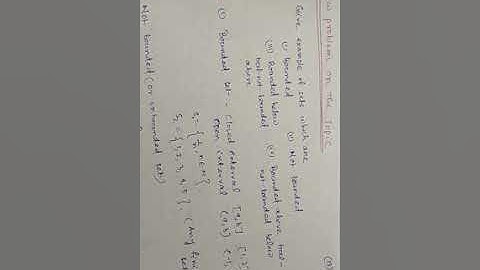 problems on the Topic
Give example of sets which are
(i) Bounded (ii) Not bounded
(iii) Bounded below but not bounded above
(iv) Bounded above but not bounded below
(i) Bounded set - closed interval [a,b]
open interval (a,b)
S₁ = { 1/n, n∈N }
S₂ = {1, 2, 3, 4, 5}, (Any
Not bounded (or unbounded set)